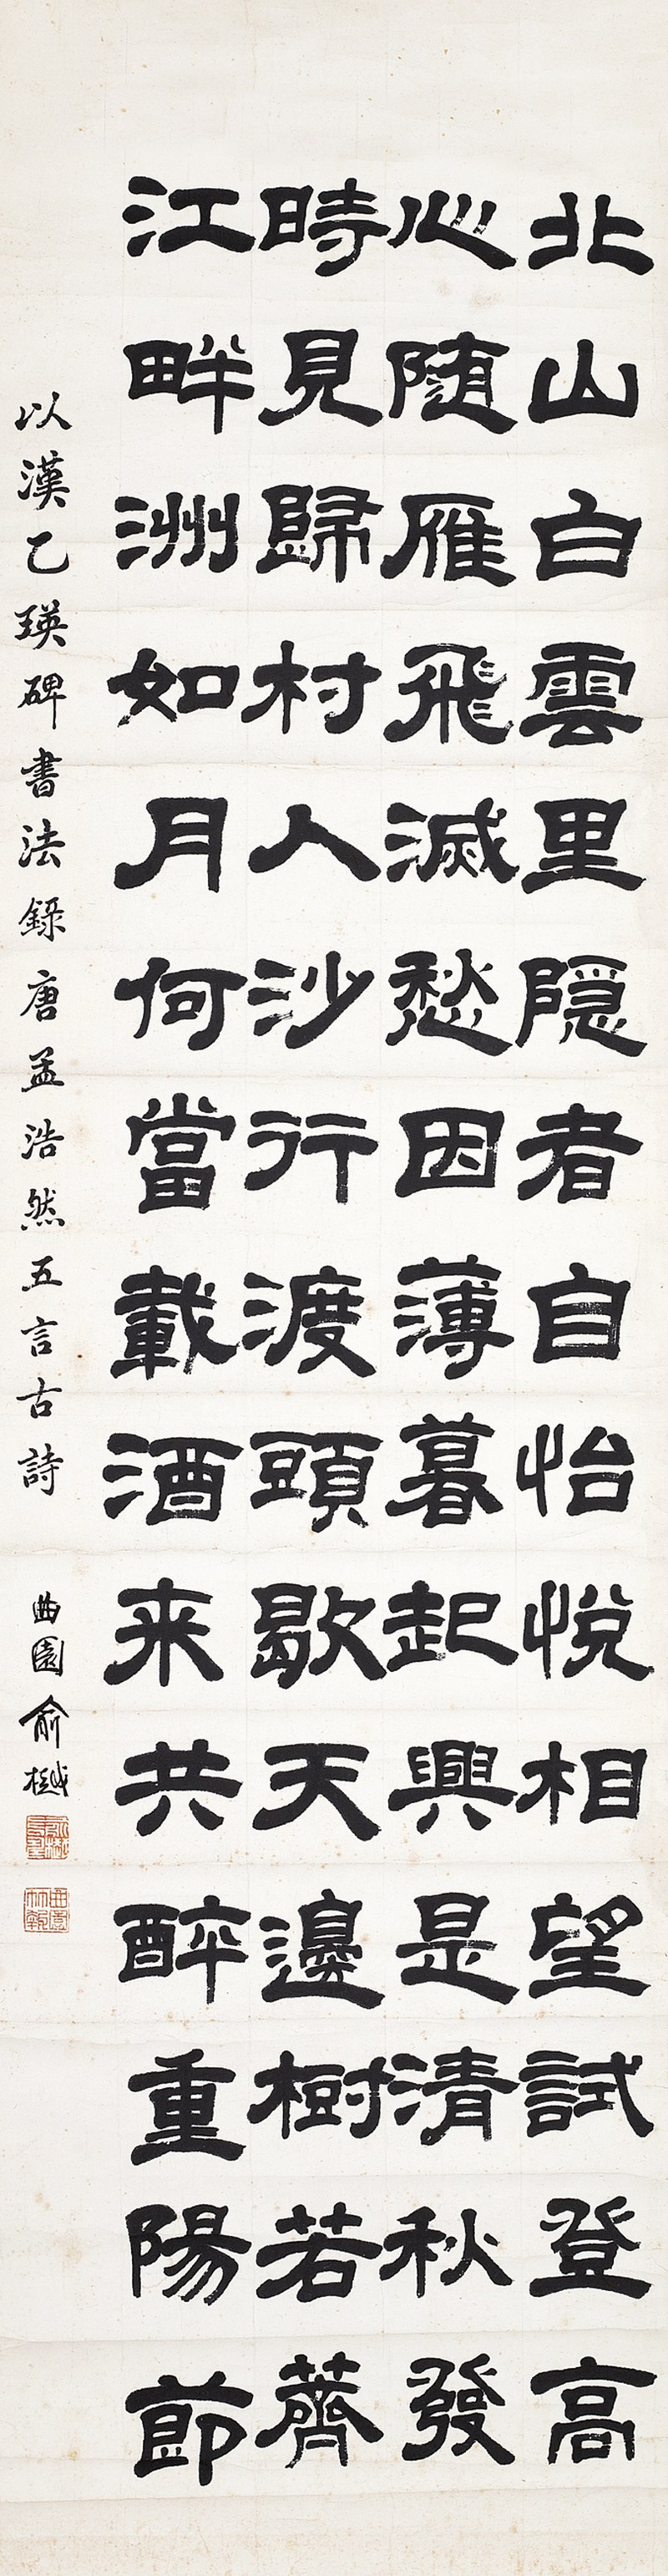 北山白雲里隱者自怡悅相望試登高
心随雁飛滅愁因薄暮起興是清秋發
時見歸村人沙行渡頭歇天邊樹若薺
江畔洲如月何當載酒来共醉重陽節
以漢乙瑛碑書法錄唐孟浩然五言古詩
曲園俞樾